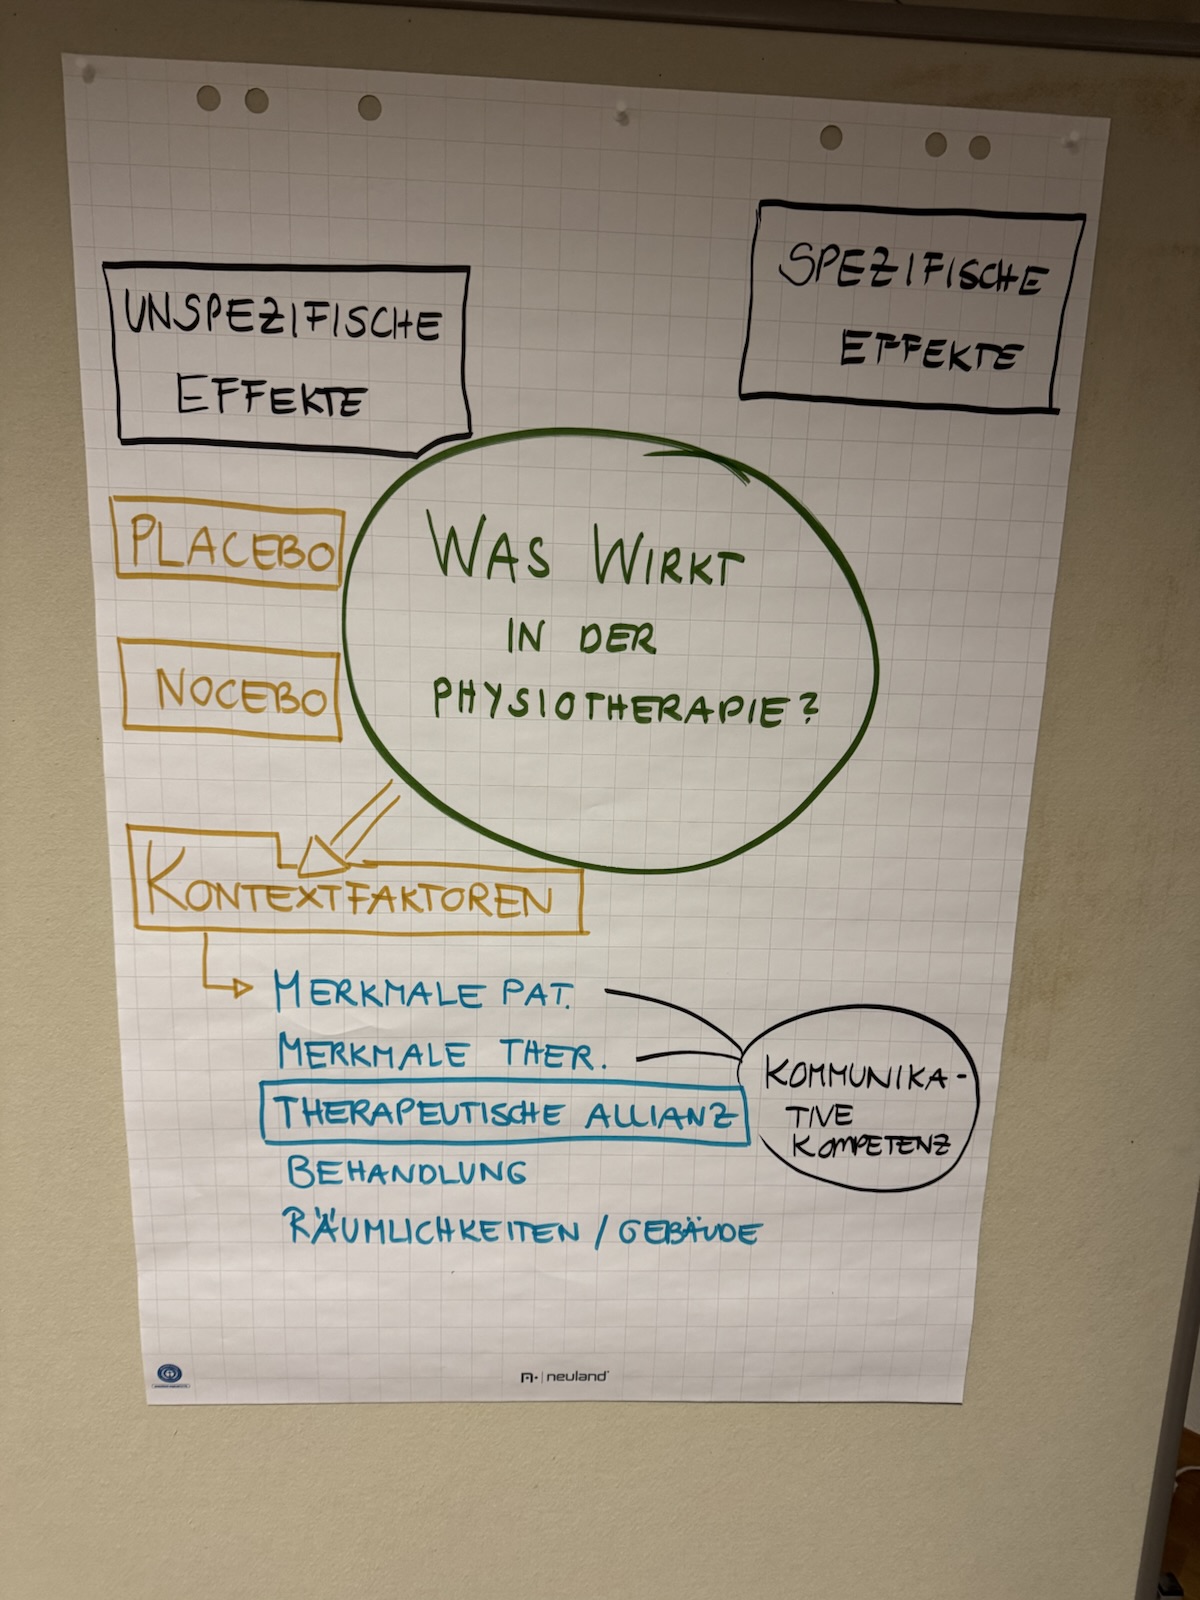 UNSPEZIFISCHE
EFFEKTE
SPEZIFISCHE
EFFEKTE
PLACEBO
NOCEBO
WAS WIRKT
IN DER
PHYSIOTHERAPIE?
KONTEXTFAKTOREN
MERKMALE PAT.
MERKMALE THER.
THERAPEUTISCHE ALLIANZ
BEHANDLUNG
RÄUMLICHKEITEN / GEBÄUDE
KOMMUNIKA-
TIVE
KOMPETENZ
neuland